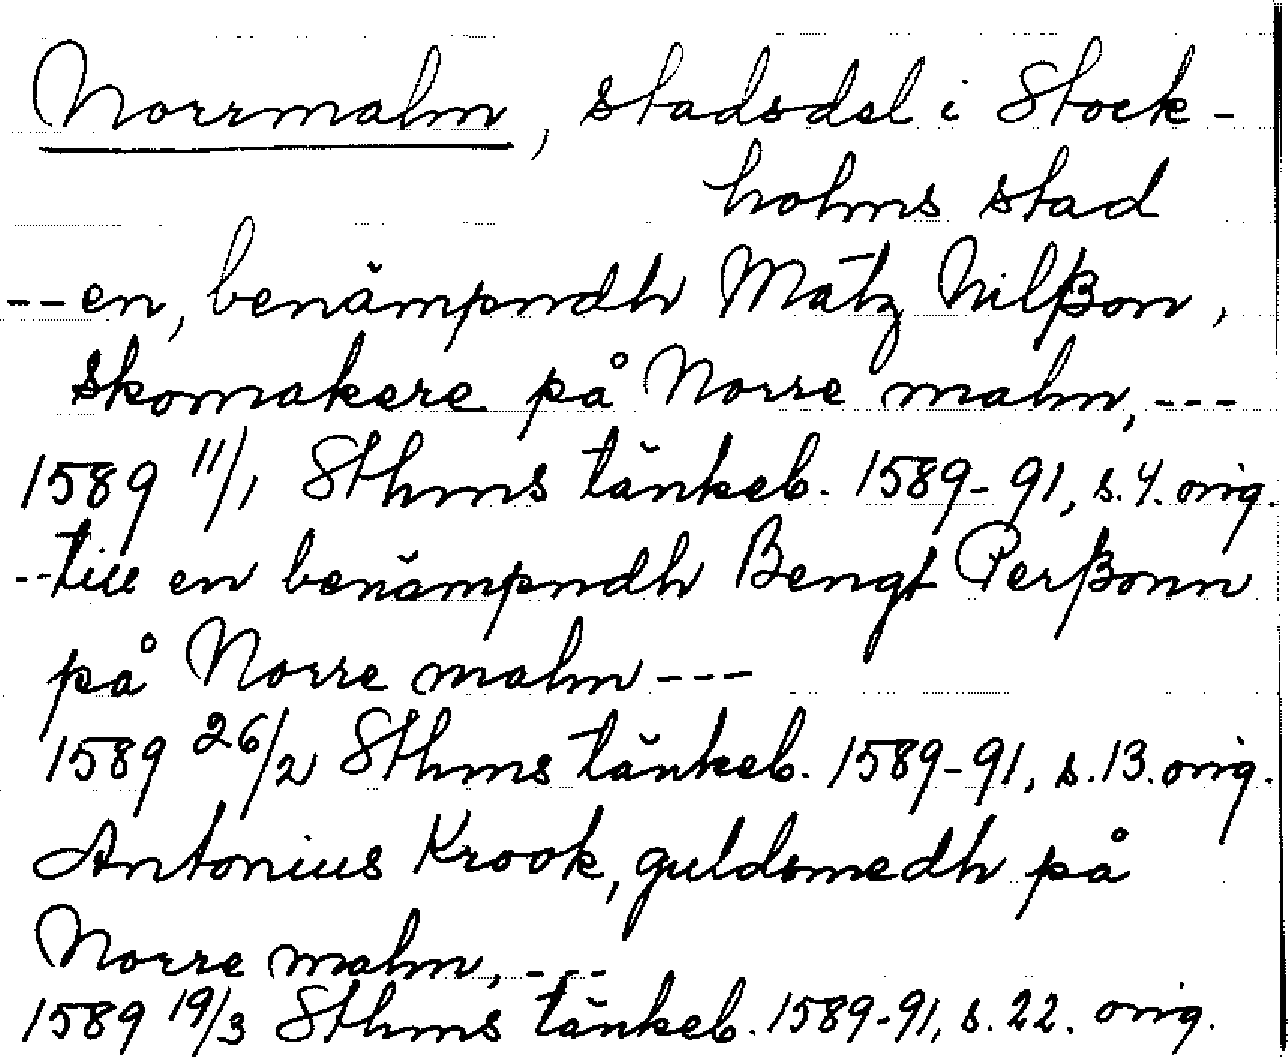 Norrmalm, stadsdel i Stock-
holms stad
-- en, benämpndh Matz Nilßon,
skomakere på Norre malm, ---
1589 11/1 Sthms tänkeb. 1589-91, s. 4. orig.
-- till en benämpndh Bengt Perßonn
på Norre malm ---
1589 26/2 Sthms tänkeb. 1589-91, s. 13. orig.
Antonius Krook, guldsmedh på
Norre malm, ---
1589 19/3 Sthms tänkeb. 1589-91, s. 22. orig.